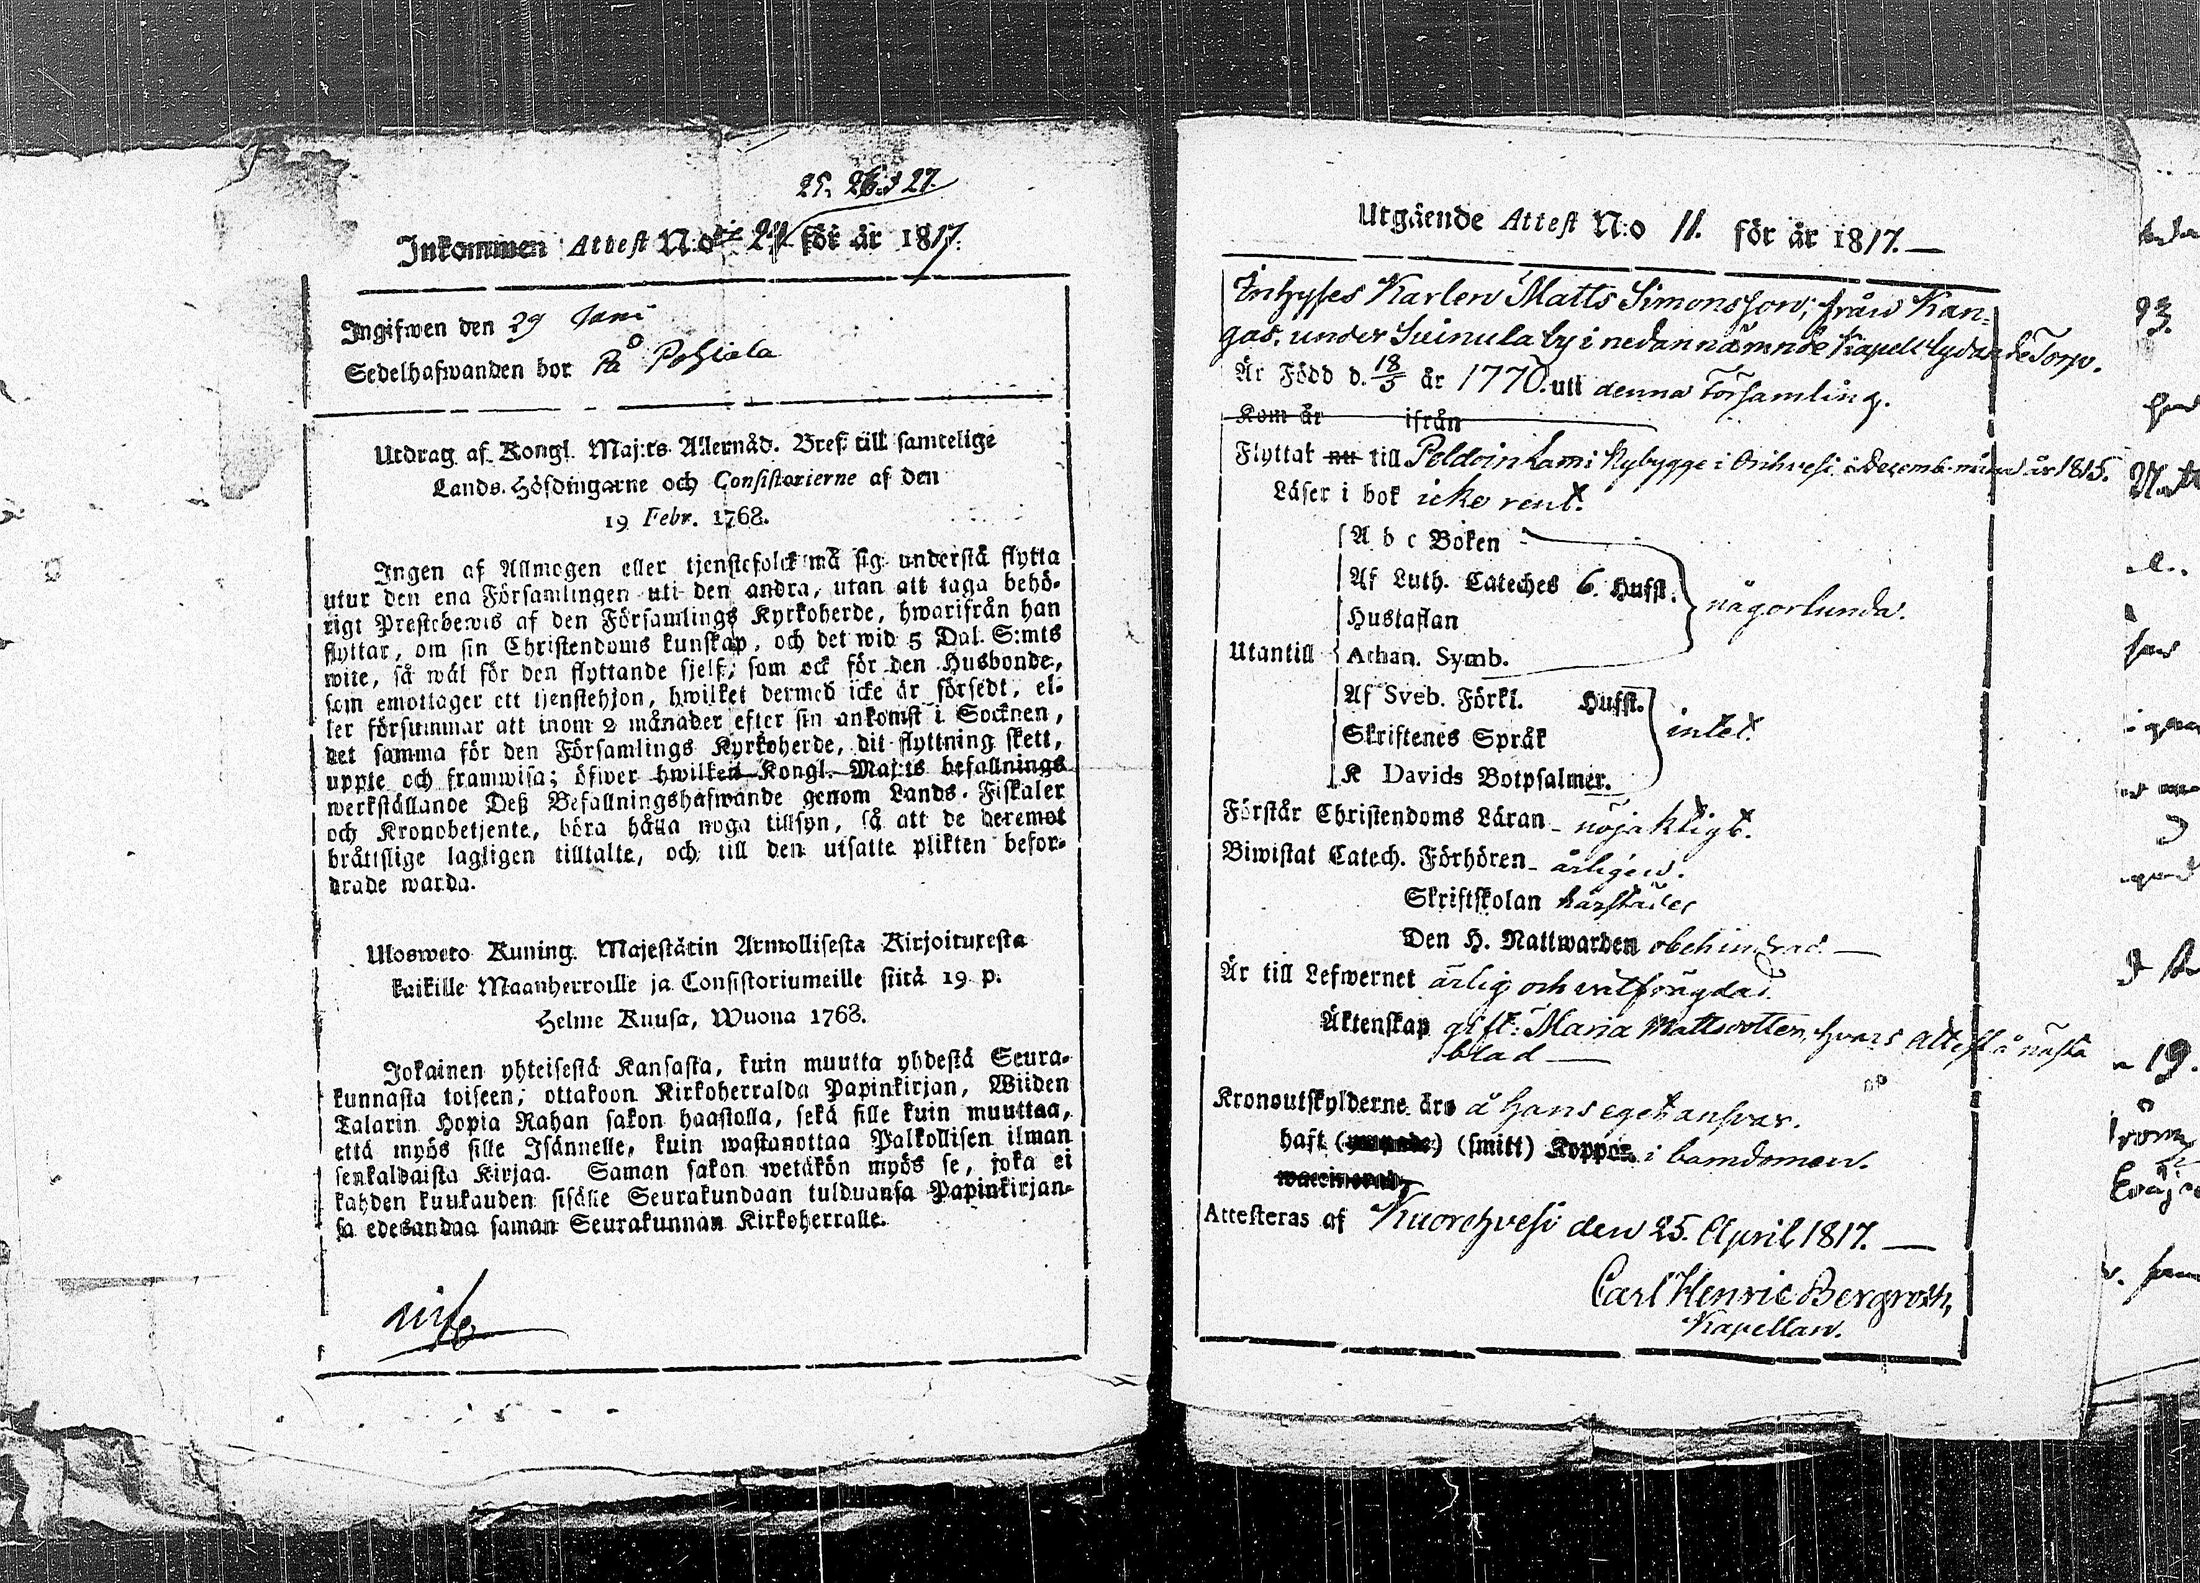 25. 26. & 27.
Inkommen Attest N:o 24 för år 1817.
Ingifwen den 29 Juni
Sedelhafwanden bor På Pohjala
Utdrag af Kongl. Maj:ts Allernåd. Bref till samtelige
Lands-Höfdingarne och Consistorierne af den
19 Febr. 1768.
Ingen af Allmogen eller tjenstefolck må sig understå flytta
utur den ena Församlingen uti den andra, utan att taga behö-
rigt Prestebewis af den Församlings Kyrkoherde, hwarifrån han
flyttar, om sin Christendoms kunskap, och det wid 5 Dal. S:mts
wite, så wäl för den flyttande sjelf, som ock för den Husbonde,
som emottager ett tjenstehjon, hwilket dermed icke är försedt, el-
ler försummar att inom 2 månader efter sin ankomst i Socknen,
det samma för den Församlings Kyrkoherde, dit flyttning skett,
uppte och framwisa; öfwer hwilken Kongl. Maj:ts befallnings
werkställande Deß Befallningshafwande genom Lands-Fiskaler
och Kronobetjente, böra hålla noga tillsyn, så att de deremot
bråttslige lagligen tilltalte, och till den utsatte plikten befor-
drade warda.
Ulosweto Kuning. Majestätin Armollisesta Kirjoituxesta
kaikille Maanherroille ja Consistoriumeille siitä 19 p.
Helme Kuusa, Wuona 1768.
Jokainen yhteisestä Kansasta, kuin muutta yhdestä Seura-
kunnasta toiseen; ottakoon Kirkoherralda Papinkirjan, Wiiden
Talarin Hopia Rahan sakon haastolla, sekä sille kuin muuttaa,
että myös sille Isännelle, kuin wastanottaa Palkollisen ilman
senkaldaista Kirjaa. Saman sakon wetäkön myös se, joka ei
kahden kuukauden sisälle Seurakundaan tulduansa Papinkirjan-
sa edesandaa saman Seurakunnan Kirkoherralle.
Utgående Attest N:o 11. för år 1817.
Inhyses Karlen Matts Simonsson, från Kan-
gas, under Suinula by i nedannämnde Kapell lydande Torp.
Är Född d. 18/5 år 1770. uti denna Församling.
Kom år ifrån
Flyttat nu till Peldoin Lami Nybygge i Orihvesi i Decemb. månad år 1815.
Läser i bok icke rent.
A b c Boken
Af Luth. Cateches 6. Hufst. någorlunda.
Hustaflan
Utantill Athan. Symb.
Af Sveb. Förkl. Hufst.
Skriftenes Språk intet.
K Davids Botpsalmer.
Förstår Christendoms Läran nöjaktigt.
Biwistat Catech. Förhören årligen.
Skriftskolan härstädes
Den H. Nattwarden obehindrad
Är till Lefwernet ärlig och välfrägdad.
Äktenskap gift: Maria Mattsdotter, hvars Attest å nästa
blad
Kronoutskylderne äro å hans eget ansvar.
haft (smitt) Koppor i barndomen.
Attesteras af Kuorehvesi den 25. April 1817.
Carl Henric Bergroth,
Kapellan.